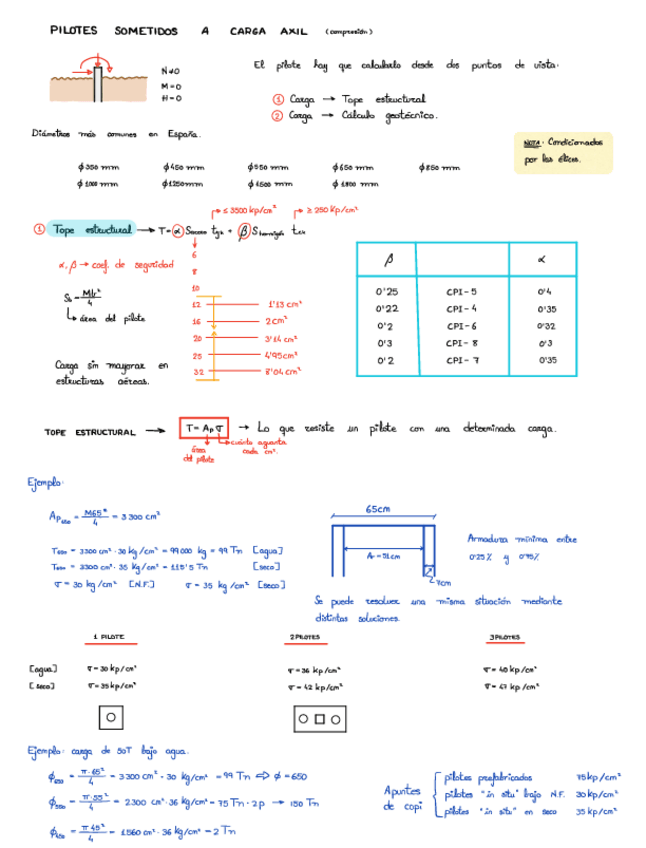 PILOTES SOMETIDOS A CARGA AXIL (compresión)
N≠0
M=0
H=0
El pilote hay que calcularlo desde dos puntos de vista.
① Carga → Tope estructural
② Carga → Cálculo geotécnico.
Diámetros más comunes en España.
NOTA: Condicionados
por las élices.
ϕ350 mm ϕ450 mm ϕ550 mm ϕ650 mm ϕ850 mm
ϕ1000 mm ϕ1250mm ϕ1500 mm ϕ1800 mm
≤ 3500 kp/cm² ≥ 250 kp/cm²
① Tope estructural → T= α Sacero + β Shormigón
α, β → coef. de seguridad
área del pilote
Carga sin mayorar en
estructuras aéreas.
6
8
10
12 1'13 cm²
16 2cm²
20 3'14 cm²
25 4'95cm²
32 8'04 cm²
β α
0'25 CPI-5 0'4
0'22 CPI-4 0'35
0'2 CPI-6 0'32
0'3 CPI-8 0'3
0'2 CPI-7 0'35
TOPE ESTRUCTURAL → T= Ap σ → Lo que resiste un pilote con una determinada carga.
área
del pilote
cuánto aguanta
cada cm².
Ejemplo:
= 3300 cm²
T650 = 3300 cm² · 30 kg/cm² = 99000 kg = 99 Tn [agua]
T650 = 3300 cm² · 35 kg/cm² = 115'5 Tn [seco]
σ = 30 kg/cm² [N.F.] σ = 35 kg/cm² [seco]
65cm
= 51cm
7cm
Armadura mínima entre
Se puede resolver una misma situación mediante
distintas soluciones.
1 PILOTE 2 PILOTES 3 PILOTES
[agua] σ = 30 kp/cm² σ = 36 kp/cm² σ = 40 kp/cm²
[seco] σ = 35 kp/cm² σ = 42 kp/cm² σ = 47 kp/cm²
Ejemplo: carga de 50T bajo agua.
ϕ650 = π·65²/4 = 3300 cm² · 30 kg/cm² = 99 Tn ⇒ ϕ=650
ϕ550 = π·55²/4 = 2300 cm² · 36 kg/cm² = 75 Tn · 2p → 150 Tn
ϕ450 = π45²/4 = 1560 cm² · 36 kg/cm² = 2 Tn
Apuntes
de copi
pilotes prefabricados 75kp/cm²
pilotes "in situ" bajo N.F. 30kp/cm²
pilotes "in situ" en seco 35 kp/cm²